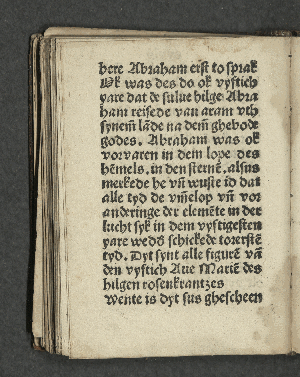 here Abraham erst to sprak
Uk was des do ok vyftich
yare dat de sulue hilge Abra
ham reisede van aram vth
synem lāde na dem ghebode
godes. Abraham was ok
vorvaren in dem lope des
hēmels, in den sternē, alsus
merkede he vn̄ wuste id dat
alle tyd de vm̄elop vn̄ vor
anderinge der elemēte in der
lucht syk in dem vyftigesten
yare wedō schickede torerstē
tyd. Dyt synt alle figurē vā
den vyftich Aue Mariē des
hilgen rosenkrantzes
Wente is dyt sus ghescheen